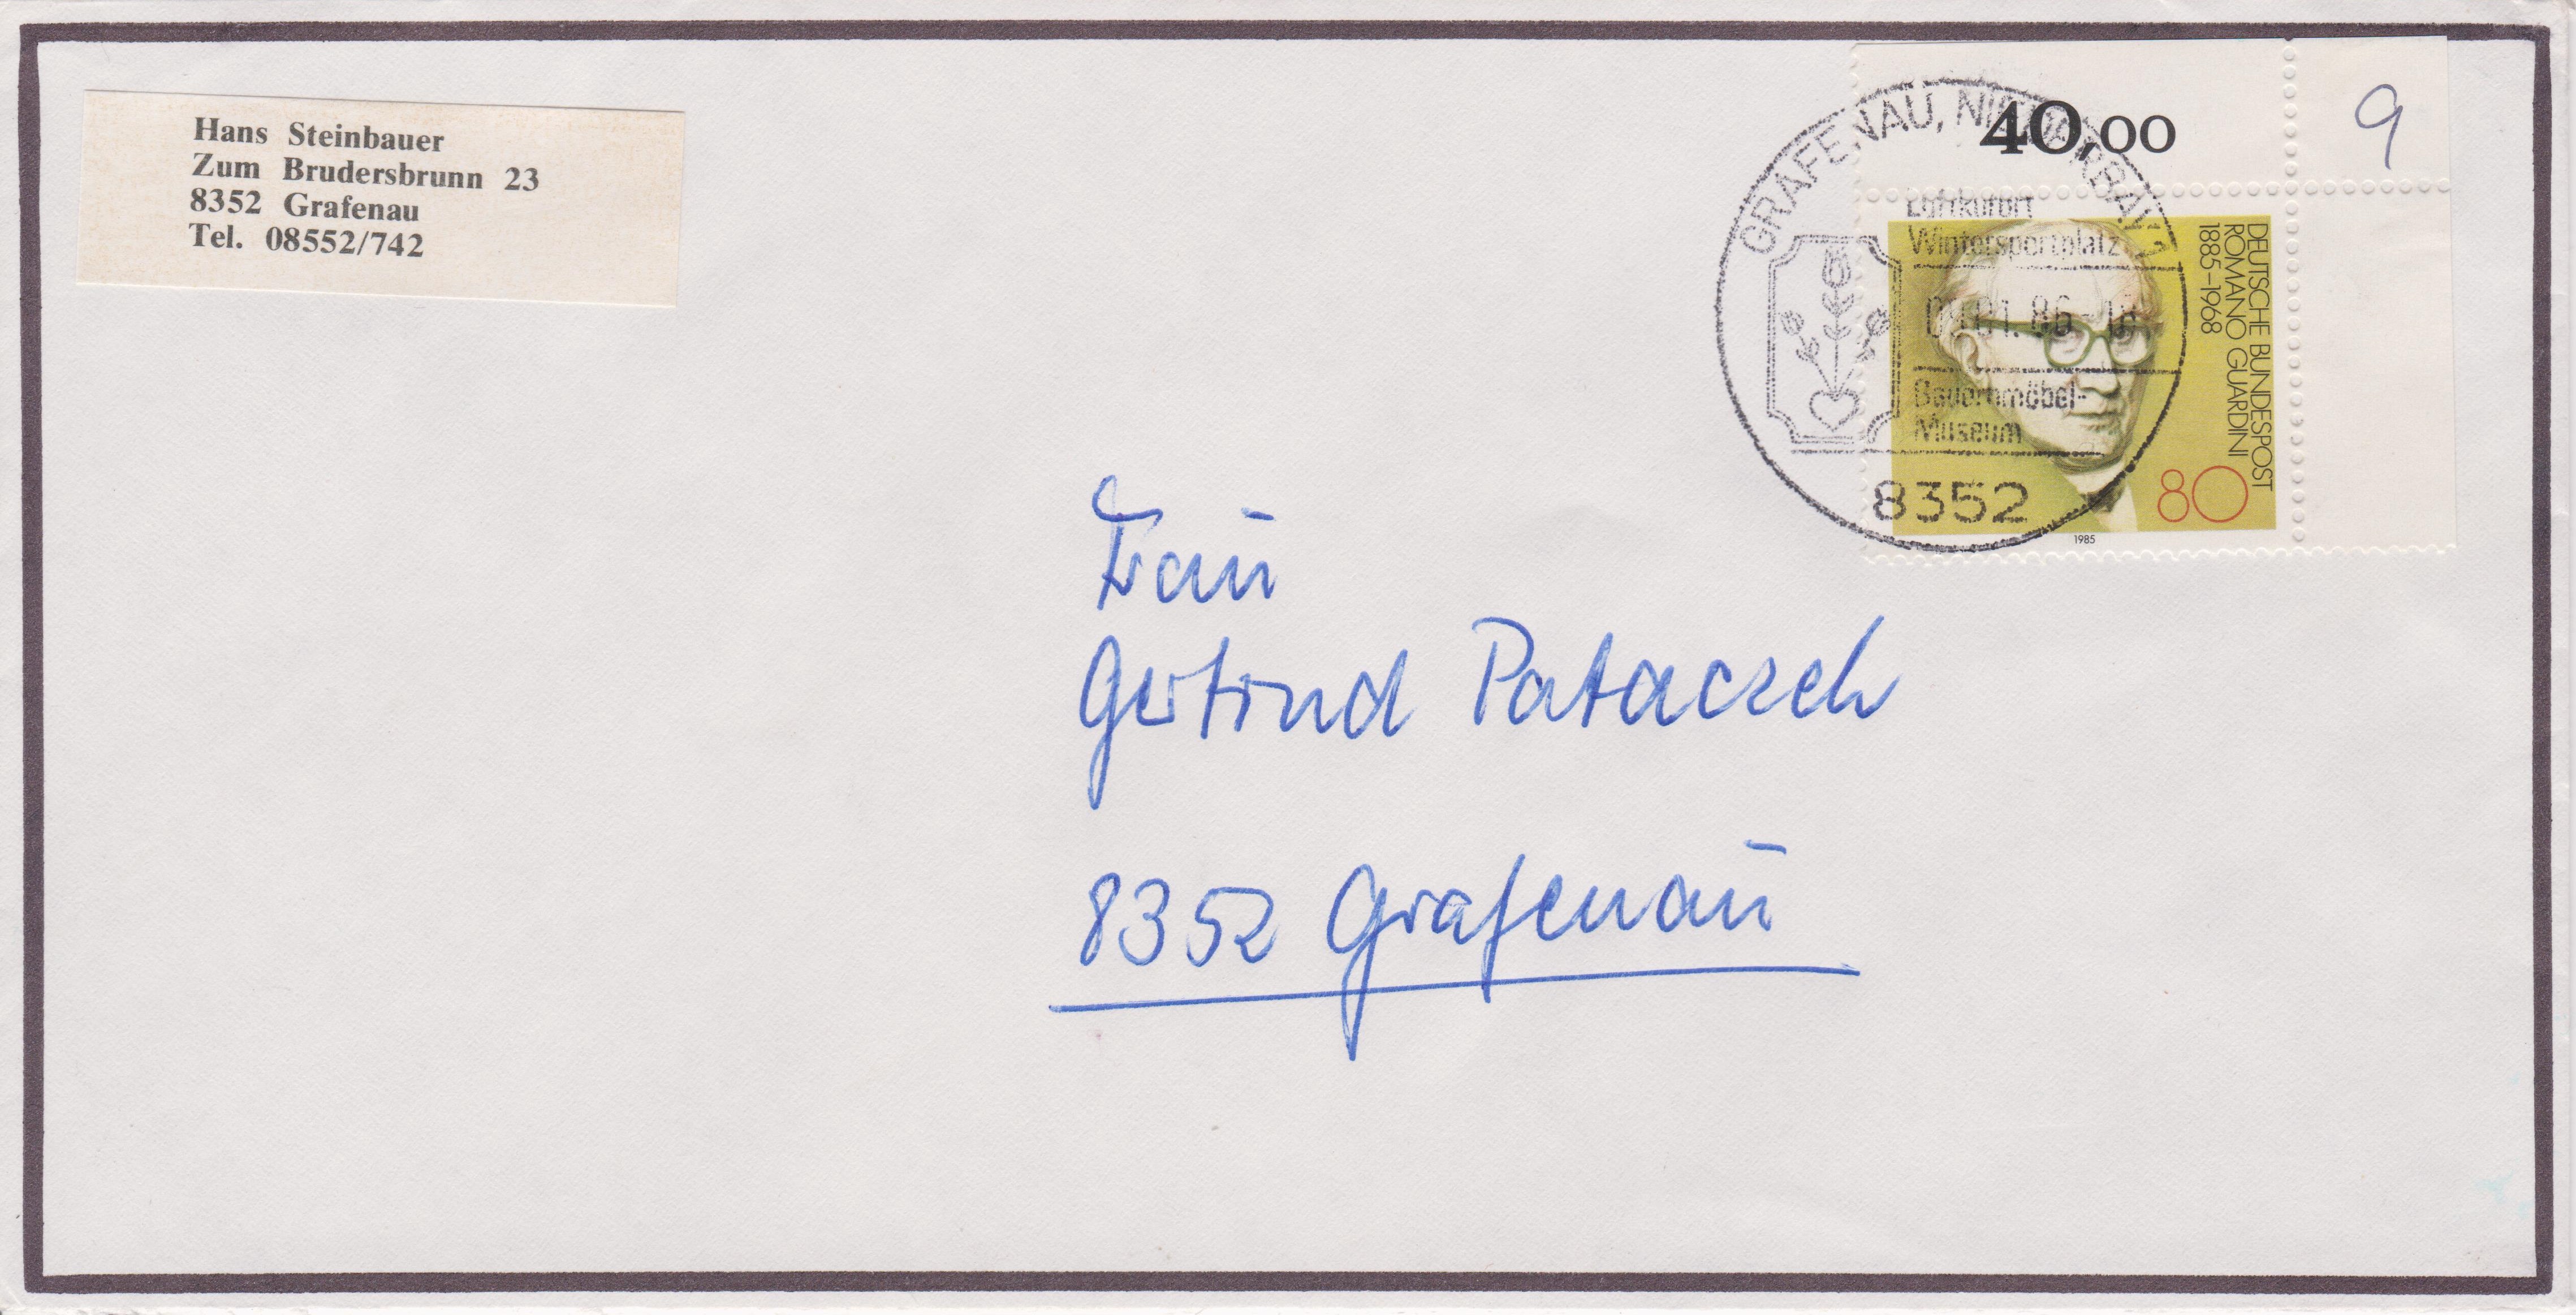 Hans Steinbauer
Zum Brudersbrunn 23
8352 Grafenau
Tel. 08552/742
40,00
9
GRAFENAU, NIEDERBAY 1
Luftkurort
Wintersportplatz
Bauernmöbel-
Museum
8352
DEUTSCHE BUNDESPOST
ROMANO GUARDINI
1885-1968
80
1985
Frau
Gertrud Pataczek
8352 Grafenau